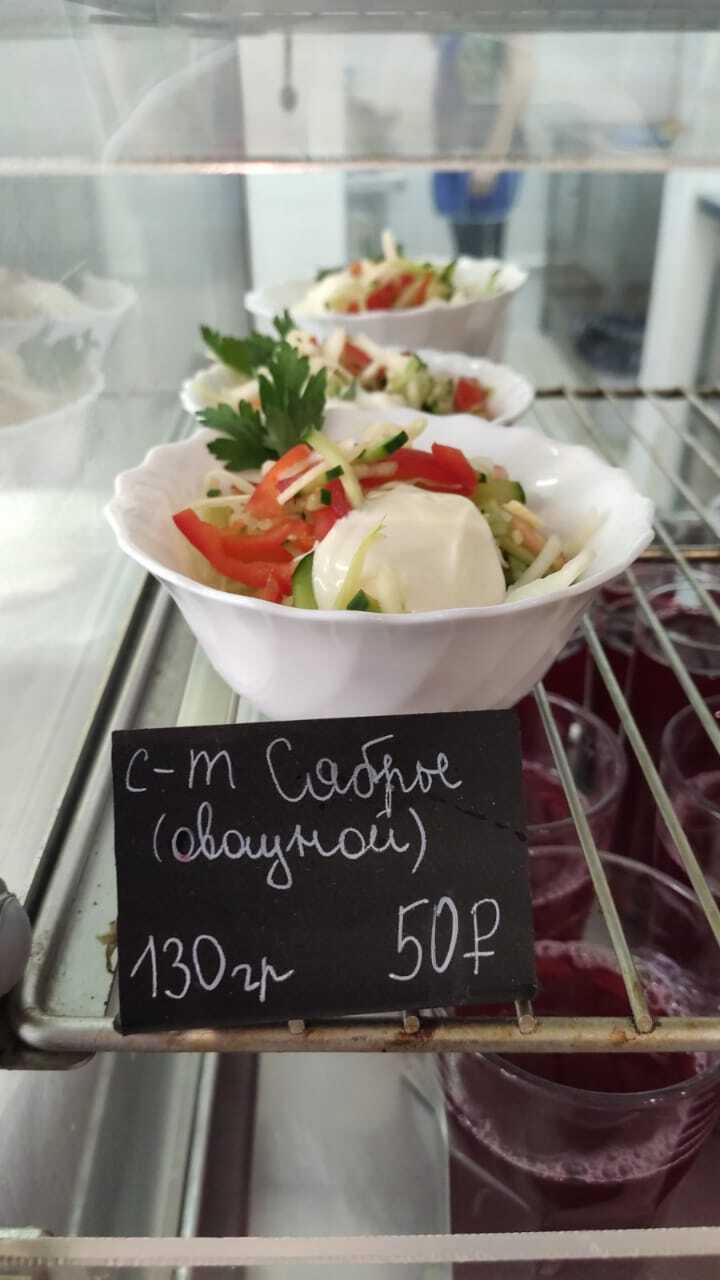 с-т Сябры
(овощной)
130гр 50₽